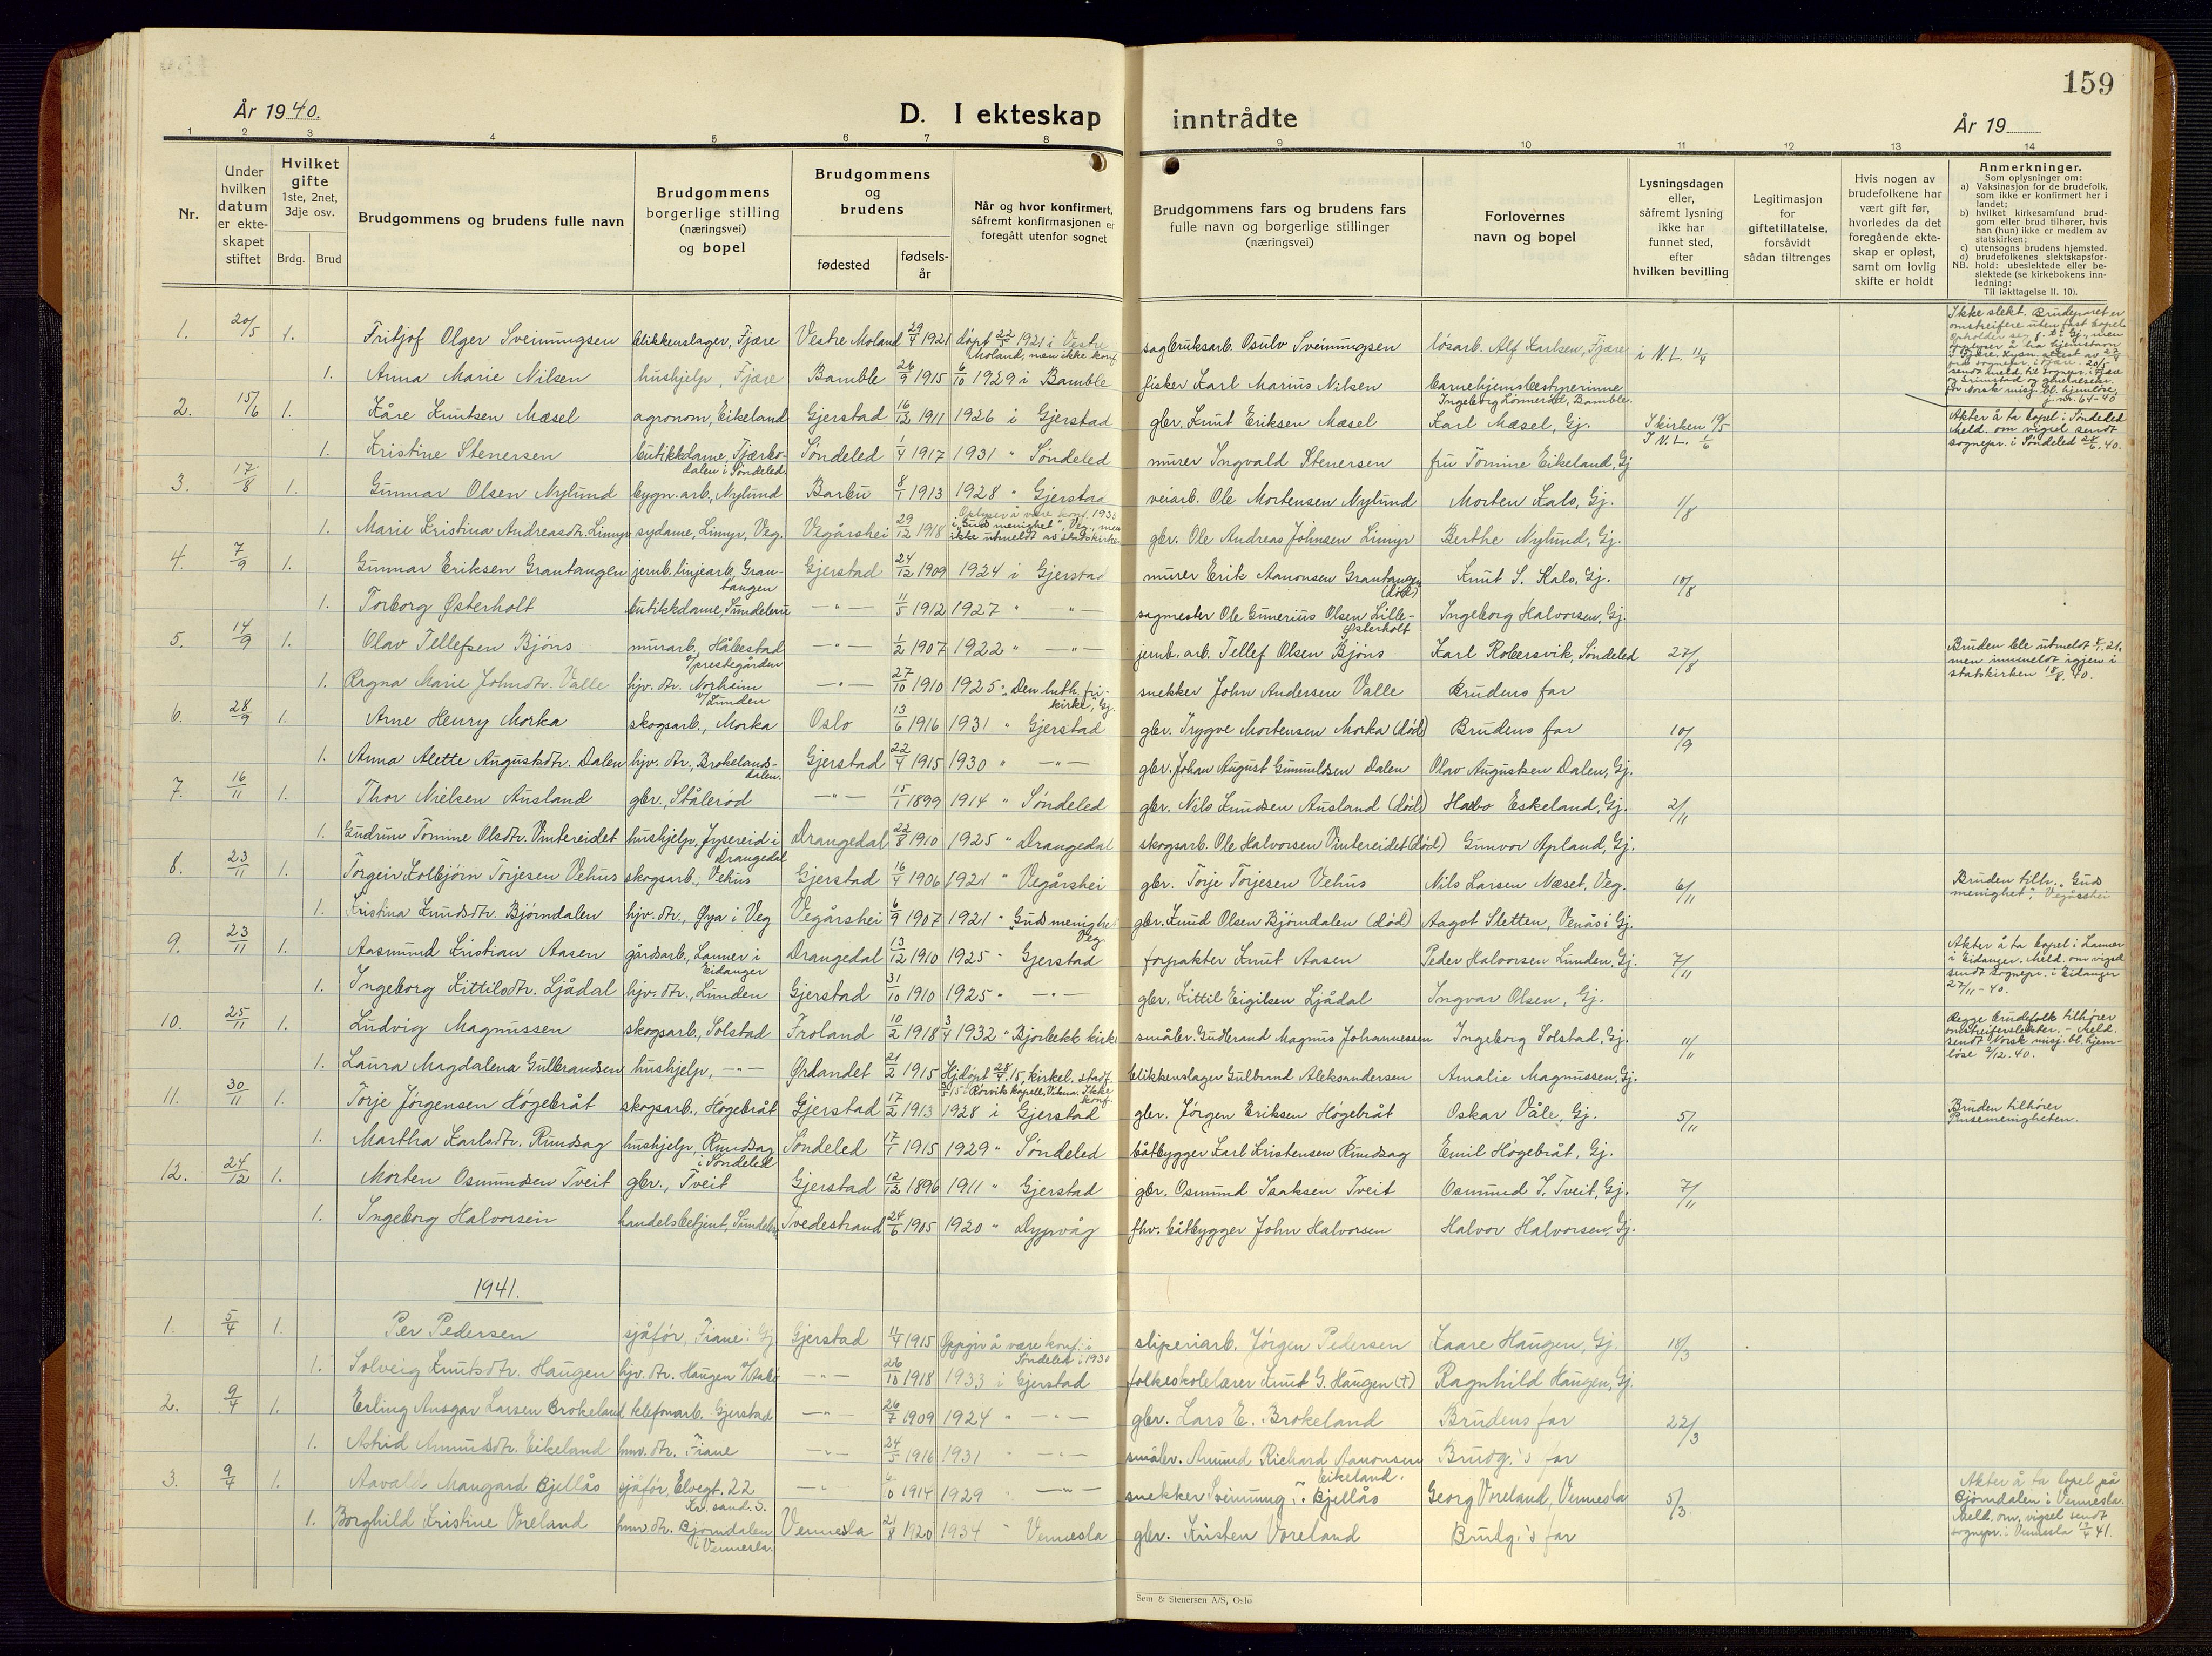 159
År 1940.
D. I ekteskap inntrådte
År 19
1 2 3 4 5 6 7 8 9 10 11 12 13 14
Nr.
Under hvilken datum er ekteskapet stiftet
Hvilket gifte 1ste, 2net, 3dje osv.
Brdg. Brud
Brudgommens og brudens fulle navn
Brudgommens borgerlige stilling (næringsvei) og bopel
Brudgommens og brudens
fødested
fødselsår
Når og hvor konfirmert, såfremt konfirmasjonen er foregått utenfor sognet
Brudgommens fars og brudens fars fulle navn og borgerlige stillinger (næringsvei)
Forlovernes navn og bopel
Lysningsdagen eller, såfremt lysning ikke har funnet sted, efter hvilken bevilling
Legitimasjon for giftetillatelse, forsåvidt sådan tiltrenges
Hvis nogen av brudefolkene har vært gift før, hvorledes da det foregående ekteskap er opløst, samt om lovlig skifte er holdt
Anmerkninger.
Som oplysninger om:
a) Vaksinasjon for de brudefolk, som ikke er konfirmert her i landet;
b) hvilket kirkesamfund brudgom eller brud tilhører, hvis han (hun) ikke er medlem av statskirken;
c) utensogns brudens hjemsted.
d) brudefolkenes slektskapsforhold: ubeslektede eller beslektede (se kirkebokens innledning:
NB.
Til iakttagelse II. 10).
1. 20/5 1. Fritjof Olger Sveinungsen blikkenslager, Fjære Vestre Moland 29/4 1921 døpt 22/5 1921 i Vestre Moland, men ikke konf. sagbruksarb. Osulv Sveinungsen løsarb. Alf Karlsen, Fjære i N.L. 11/4 Ikke slekt. Brudeparet er omstreifere uten fast bopel
1. Anna Marie Nilsen hushjelp, Fjære Bamble 26/9 1915 6/10 1929 i Bamble fisker Karl Marius Nilsen barnehjemsbestyrerinne Ingeborg Lønnerdal, Bamble. j. nr. 64-40
2. 15/6 1. Kåre Knutsen Mæsel agronom, Eikeland Gjerstad 16/12 1911 1926 i Gjerstad gbr. Knut Eriksen Mæsel Karl Mæsel, Gj. I kirken 19/5 I N.L. 1/6 Akter å ta bopel i Søndeled Meld. om vigsel sendt sognepr. i Søndeled 24/6.40.
1. Kristine Stenersen butikkdame, Fjærbudalen i Søndeled. Søndeled 1/4 1917 1931 " Søndeled murer Ingvald Stenersen fru Tomine Eikeland, Gj
3. 17/8 1. Gunnar Olsen Nylund bygn. arb., Nylund Barbu 8/1 1913 1928 " Gjerstad veiarb. Ole Mortensen Nylund Morten Kals, Gj. 1/8
1. Marie Kristina Andreasdtr. Limyr sydame, Limyr, Veg. Vegårshei 29/12 1918 Oplyser å være konf. 193 i "Guds menighet", Veg., men ikke utmeldt av statskirken gbr. Ole Andreas Johnsen Limyr Berthe Nylund, Gj.
4. 7/9 1. Gunnar Eriksen Grantangen jernb. linjearb. Grantangen Gjerstad 24/12 1909 1924 i Gjerstad murer Erik Aanonsen Grantangen (død) Knut S. Kals, Gj. 10/8
1. Torborg Østerholt butikkdame, Sundebru —"— 11/5 1912 1927 " —"— sagmester Ole Gunerius Olsen Lille-Østerholt Ingeborg Halvorsen, Gj.
5. 14/9 1. Olav Tellefsen Bjøns murarb., Håbestad v/prestegården —"— 1/2 1907 1922 " —"— jernb. arb. Tellef Olsen Bjøns Karl Robersvik, Søndeled 27/8 Bruden ble utmeldt men innmeldt igjen i statskirken 18/8.40.
1. Ragna Marie Johndtr. Valle hjv. dtr. Norheim v/Lunden —"— 27/10 1910 1925 " Den luth. frikirke, Gj. snekker John Andersen Valle Brudens far
6. 28/9 1. Arne Henry Morka skogsarb., Morka Oslo 13/6 1916 1931 " Gjerstad gbr. Trygve Mortensen Morka (død) Brudens far 10/9
1. Anna Alette Augustsdtr. Dalen hjv. dtr., Brokelandsdalen. Gjerstad 22/4 1915 1930 " —"— gbr. Johan August Gunnuldsen Dalen Olav Augustsen Dalen, Gj.
7. 16/11 1. Thor Nielsen Ausland gbr., Stålerød —"— 15/1 1899 1914 " Søndeled gbr. Nils Knudsen Ausland (død) Habo Eskeland, Gj. 2/11
1. Gudrun Tomine Olsdtr. Vintereidet hushjelp, Jysereid i Drangedal Drangedal 22/8 1910 1925 " Drangedal skogsarb. Ole Halvorsen Vintereidet (død) Gunvor Apland, Gj.
8. 23/11 1. Torgeir Kolbjørn Torjesen Vehus skogsarb., Vehus Gjerstad 16/4 1906 1921 " Vegårshei gbr. Torje Torjesen Vehus Nils Larsen Næset, Veg. 6/11 Bruden tilh. "Guds menighet", Vegårshei
1. Kristina Knudsdtr. Bjørndalen hjv. dtr., Øya i Veg Vegårshei 6/9 1907 1921 " Guds menighet Veg. gbr. Knud Olsen Bjørndalen (død) Aagot Sletten, Venås i Gj.
9. 23/11 1. Aasmund Kristian Aasen gårdsarb., Lanner i Eidanger Drangedal 13/12 1910 1925 " Gjerstad forpakter Knut Aasen Peder Halvorsen Lunden, Gj. 7/11 Akter å ta bopel i Lanner i Eidanger. Meld. om vigsel sendt sognepr. i Eidanger 27/11-40.
1. Ingeborg Kittilsdtr. Ljådal hjv. dtr., Lunden Gjerstad 31/10 1910 1925 " —"— gbr. Kittil Eigilsen Ljådal Ingvar Olsen, Gj.
10. 25/11 1. Ludvig Magnussen skogsarb., Solstad Froland 10/2 1918 3/4 1932 " Bjorbekk kirke småbr. Gudbrand Magnus Johannessen Ingeborg Solstad, Gj. 11/11 Begge brudefolk tilhører omstreiferslekter. - Meld. sendt Norsk misj. bl. hjemløse 2/12.40.
1. Laura Magdalena Gulbrandsen hushjelp, —"— Ørlandet 21/2 1915 Hj.døpt 28/4.15, kirkel. stadf. Rørvik kapell, Vikna. Ikke konf. blikkenslager Gulbrand Aleksandersen Amalie Magnussen, Gj.
11. 30/11 1. Torje Jørgensen Høgebråt skogsarb., Høgebråt Gjerstad 17/2 1913 1928 i Gjerstad gbr. Jørgen Eriksen Høgebråt Oskar Våle, Gj. 5/11 Bruden tilhører Pinsemenigheten.
1. Martha Karlsdtr. Rundsag hushjelp, Rundsag i Søndeled Søndeled 17/1 1915 1929 " Søndeled båtbygger Karl Kristensen Rundsag Emil Høgebråt, Gj.
12. 24/12 1. Morten Osmundsen Tveit gbr., Tveit Gjerstad 12/12 1896 1911 " Gjerstad gbr. Osmund Isaksen Tveit Osmund I. Tveit, Gj. 7/11
1. Ingeborg Halvorsen handelsbetjent, Sundebru Tvedestrand 24/6 1905 1920 " Dypvåg fhv. båtbygger John Halvorsen Halvor Halvorsen, Gj.
1941.
1. 5/4 1. Per Pedersen sjåfør, Fiane i Gj Gjerstad 11/4 1915 Oppgir å være konf. i Søndeled i 1930 sliperiarb. Jørgen Pedersen Kaare Haugen, Gj. 18/3
1. Solveig Knutsdtr. Haugen hjv. dtr. Haugen —"— 26/10 1918 1933 i Gjerstad folkeskolelærer Knut G. Haugen (†) Ragnhild Haugen, Gj.
2. 9/4 1. Erling Ansgar Larsen Brokeland telefonarb. Gjerstad —"— 26/7 1909 1924 " —"— gbr. Lars E. Brokeland Brudens far 22/3
1. Astrid Amundsdtr. Eikeland hmv. dtr. Fiane —"— 24/5 1916 1931 " —"— småbr. Amund Richard Aanonsen Eikeland. Brudg.'s far
3. 9/4 1. Aavald Mangard Bjellås sjåfør Elvegt. 22 Kr.sand. S. —"— 1914 1929 " —"— snekker Sveinung Bjellås Georg Voreland, Vennesla 5/3 Akter å ta bopel på Bjørndalen i Vennesla. Meld. om vigsel sendt sognepr. i Vennesla 19/4 41.
1. Borghild Kristine Voreland hmv. dtr. Bjørndalen i Vennesla. Vennesla 21/8 1920 1934 " Vennesla gbr. Kristen Voreland Brudg.'s far
Sem & Stenersen A/S, Oslo